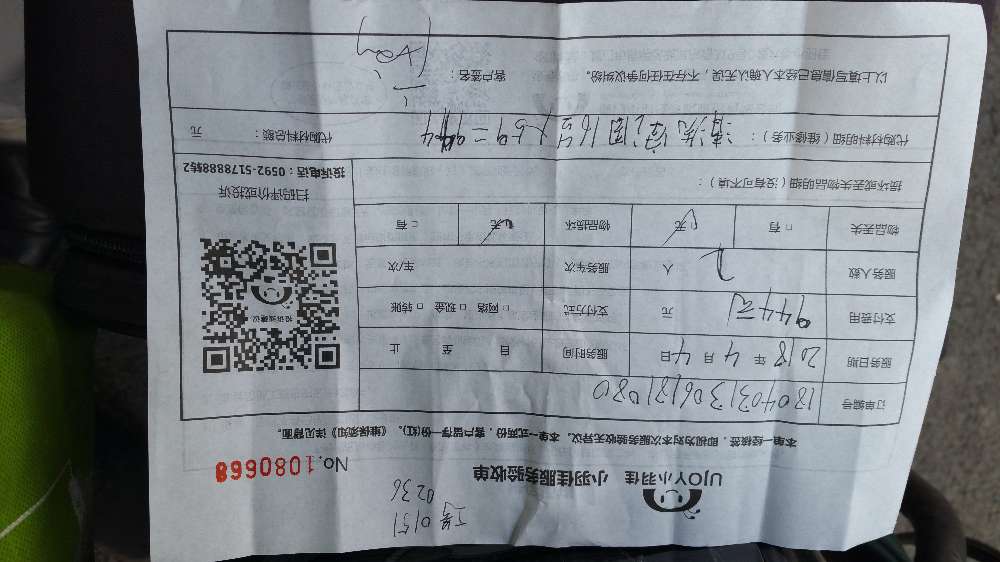 工号 0151
0236
UJOY小羽佳 小羽佳服务验收单
No.1080668
本单一经核签，即视为对本次服务验收无异议。本单一式两份，客户留存一份(红)。《维保须知》详见背面。
订单编号 180403130618108​0
服务日期 2018 年 4 月 4 日 服务时间 自 至 止
支付费用 944元 元 支付方式 □ 网络 □ 现金 □ 转账
服务人数 2 人 服务车次 车/次
物品丢失 □ 有 □ 无 物品损坏 □ 无 □ 有
损坏或丢失物品明细（没有可不填）：
投诉有建议
扫码评价或投诉
投诉电话：0592-5178888转2
代购材料明细（维修业务）： 清洗 16 × 59 = 944 代购材料总额： 元
以上填写信息已经本人确认无误，不存在任何争议纠纷。 客户签名：